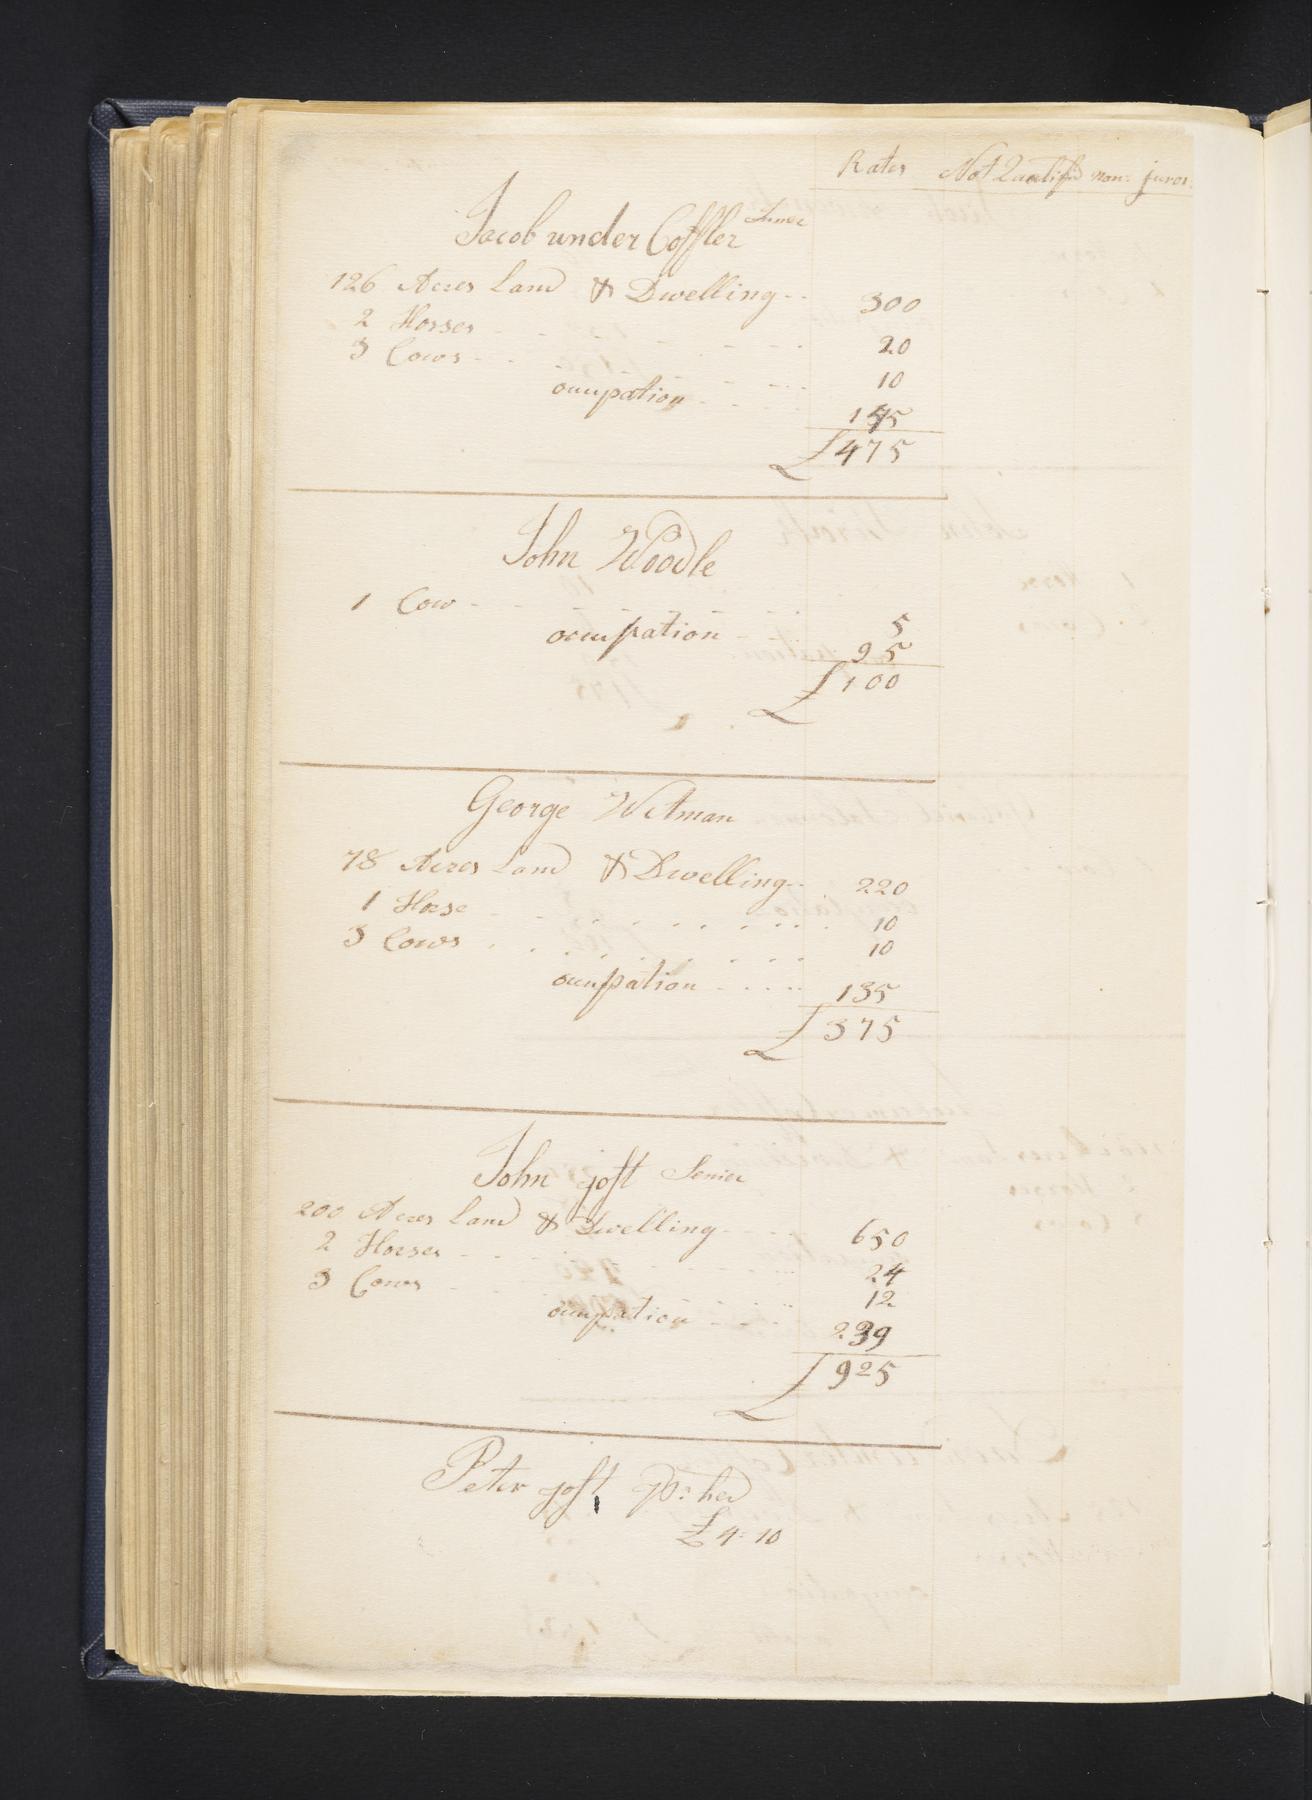 Rates Not Qualifd non: juror
Jacob under Coffler Juner
126 Acres Land & Dwelling 300
2 Horses 20
3 Cows 10
ocupation 145
£475
John Woodle
1 Cow 5
occupation 95
£100
George Witman
78 Acres Land & Dwelling 220
1 Horse 10
3 Cows 10
ocupation 135
£375
John joft Senier
200 Acres Land & Dwelling 650
2 Horses 24
3 Cows 12
ocupation 239
£925
Peter joft hed
£4:10